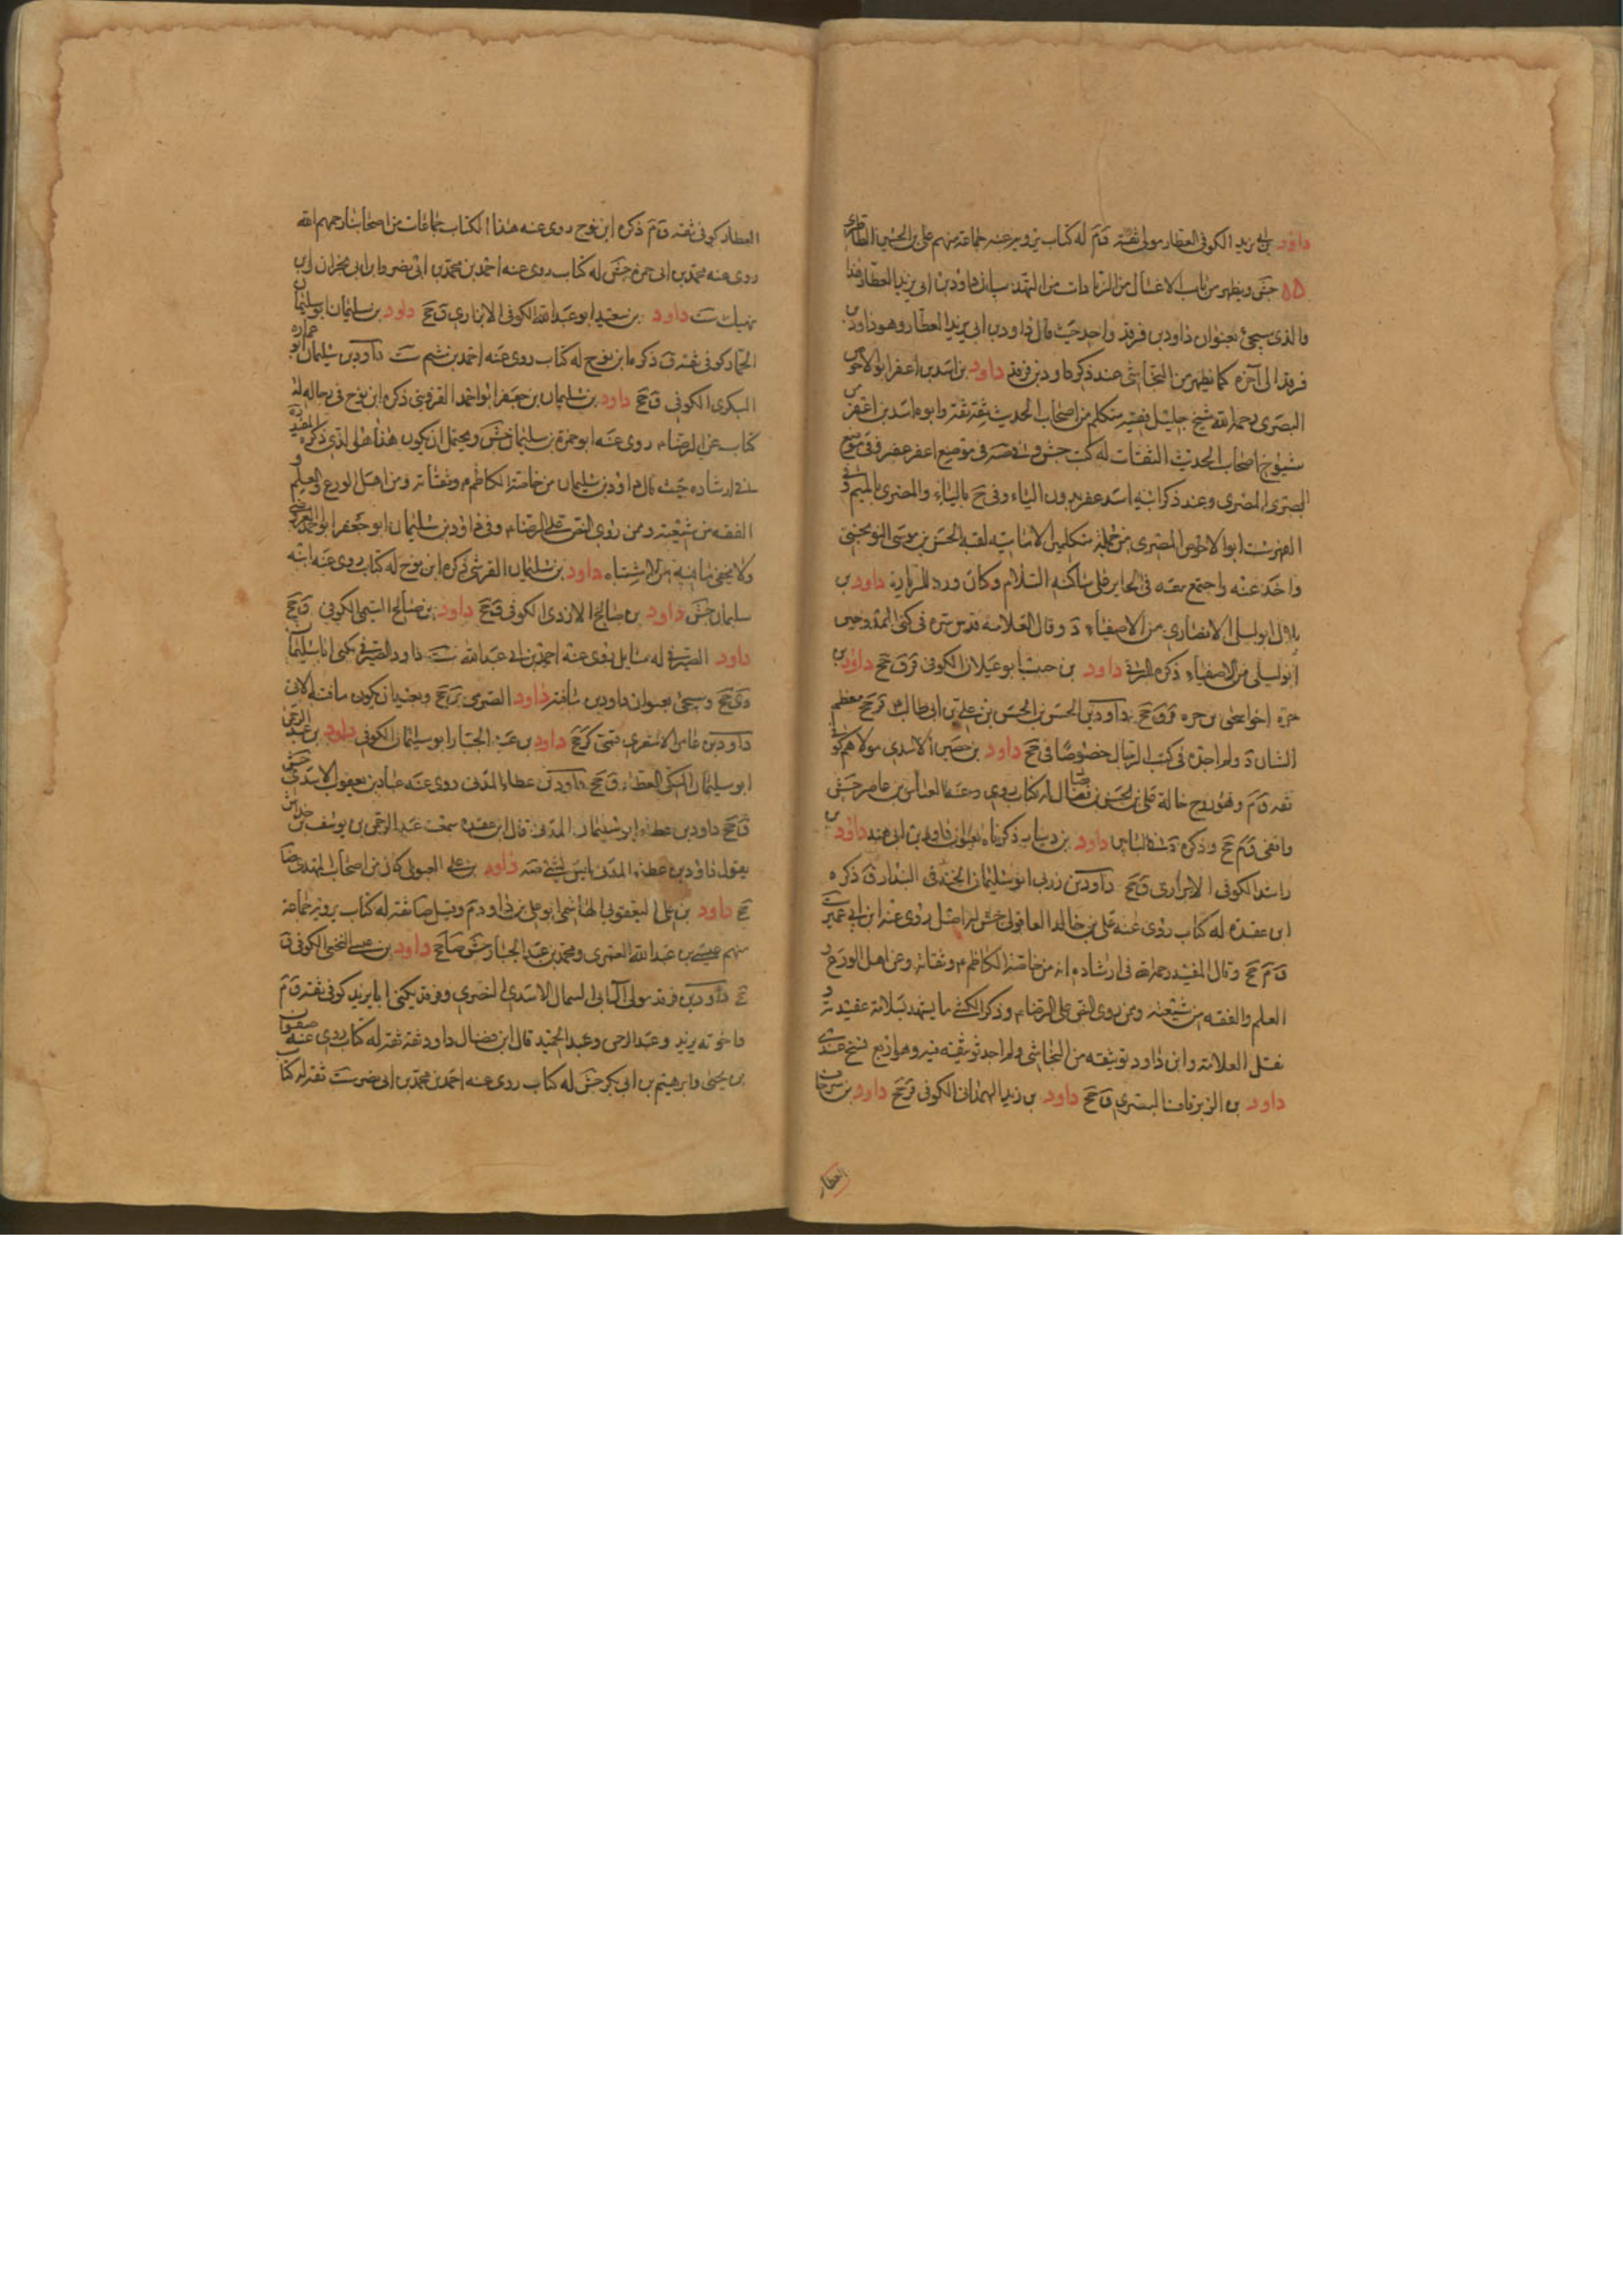 داود بن ابي يزيد الكوفي العطار مولى ثقة ق م له كتاب يرويه عنه جماعة منهم علي بن الحسن الطاطري
جش ويظهر من باب الاغسال من الزيادات من التهذيب ان داود بن ابي يزيد العطار هذا
والذي سيجئ بعنوان داود بن فرقد واحد حيث قال داود بن ابي يزيد العطار وهو داود بن
فرقد الى آخره كما يظهر من النجاشي عند ذكر داود بن فرقد داود بن اسد بن اعفر ابو الاحوص
البصري رحمه الله شيخ جليل فقيه متكلم من اصحاب الحديث ثقة ثقة وابوه اسد بن اعفر من
شيوخ اصحاب الحديث الثقات له كتب جش وفي صه في موضع اعفر عفر وفي موضع
البصري المصري وعند ذكر ابيه اسد عفر بدون الياء وفي ح بالياء والمصري بالميم د في
الفهرست ابو الاحوص المصري من جملة متكلمي الامامية لقيه الحسن بن موسى النوبختي
واخذ عنه واجتمع معه في الحاير على ساكنه السلام وكان ورد للزيارة داود بن
بلال ابو ليلى الانصاري من الاصفياء د وقال العلامة قدس سره في كنى الممدوحين
ابو ليلى من الاصفياء ذكره البرقي داود بن حبيب ابو غيلان الكوفي قر ق جخ داود بن
حرة اخو يحيى بن حره قر ق جخ داود بن الحسن بن الحسن بن علي بن ابي طالب ع قر جخ معظم
الشان د ولم اجده في كتب الرجال خصوصا في جخ داود بن حصين الاسدي مولاهم كوفي
ثقه ق م وهو زوج خالة علي بن الحسن بن فضال له كتاب روى عنه العباس بن عامر جش
واقفي ق م جخ وذكره د في البابين داود بن دينار ذكرناه بعنوان داود بن ابي هند داود بن
راشد الكوفي الابزاري ق جخ داود بن زربي ابو سليمان الخندقي البندار ق ذكره
ابن عقده له كتاب روى عنه علي بن خالد العاقولي جش له اصل روى عنه ابن ابي عمير ست
ق م جخ وقال المفيد رحمه الله في ارشاده انه من خاصة الكاظم ع وثقاته ومن اهل الورع و
العلم والفقه من شيعته وممن روى النص على الرضا ع وذكر الكشي ما يشهد بسلامة عقيدته و
نقل العلامة وابن داود توثيقه من النجاشي ولم اجد توثيقه فيه وهو اربع نسخ عندي
داود بن الزبرقان البصري ق جخ داود بن زيد الهمداني الكوفي قر جخ داود بن سرحان
العطار
العطار كوفي ثقه ق م ذكره ابن نوح روى عنه هذا الكتاب جماعات من اصحابنا رحمهم الله
روى عنه محمد بن ابي حمزه جش له كتاب روى عنه احمد بن محمد بن ابي نصر وابن ابي نجران وابن
نهيك ست داود بن سعيد ابو عبد الله الكوفي الابزاري ق جخ داود بن سليمان ابو سليمان
الحمار كوفي ثقه ق ذكره ابن نوح له كتاب روى عنه احمد بن ميثم ست داود بن سليمان ابو عماره
البكري الكوفي ق جخ داود بن سليمان بن جعفر ابو احمد القزويني ذكره ابن نوح في رجاله له
كتاب عن الرضا ع روى عنه ابو حمزة بن سليمان جش ويحتمل ان يكون هذا هو الذي ذكره المفيد
في ارشاده حيث قال داود بن سليمان من خاصة الكاظم ع وثقاته ومن اهل الورع والعلم و
الفقه من شيعته وممن روى النص على الرضا ع وفي د داود بن سليمان ابو جعفر ابو احمد القزويني
ولا يخفى ما فيه من الاشتباه داود بن سليمان القرشي ذكره ابن نوح له كتاب روى عنه ابنه
سليمان جش داود بن صالح الازدي الكوفي ق جخ داود بن صالح التيمي الكوفي ق جخ
داود الصرمي له مسايل روى عنه احمد بن ابي عبد الله ست داود الصرمي يكنى ابا سليمان
دي جخ وسيجئ بعنوان داود بن مافنه داود الصرمي جخ وبعيد ان يكون مافنة لابي
داود بن عامر الاشعري قمي كر جخ داود بن عبد الجبار ابو سليمان الكوفي داود بن عبد الرحمن
ابو سليمان المكي العطار ق جخ داود بن عطاء المدني روى عنه عباد بن يعقوب الاسدي جش
ق جخ داود بن عطاء ابو سليمان المدني قال ابن عقده سمعت عبد الرحمن بن يوسف بن خراش
يقول داود بن عطاء المدني ليس بشئ صه داود بن علي العبدي كان من اصحاب المهدي ضا
جخ داود بن علي اليعقوبي الهاشمي ابو علي بن داود م وقيل ضا ثقه له كتاب يرويه جماعة
منهم عيسى بن عبد الله العمري ومحمد بن عبد الجبار جش ضا جخ داود بن عيسى النخعي الكوفي ق
جخ داود بن فرقد مولى آل ابي السمال الاسدي النصري وفرقد يكنى ابا يزيد كوفي ثقه ق م
واخوته يزيد وعبد الرحمن وعبد الحميد قال ابن فضال داود ثقة ثقة له كتاب روى عنه صفوان
بن يحيى وابرهيم بن ابي بكر جش له كتاب روى عنه احمد بن محمد بن ابي نصر ست ثقه له كتاب